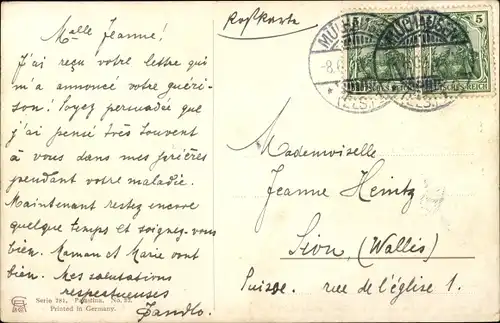 Mlle Jeanne!
J'ai reçu votre lettre qui
m'a annoncé votre guéri-
son! Soyez persuadée que
j'ai pensé très souvent
à vous dans mes prières
pendant votre maladie.
Maintenant restez encore
quelque temps et soignez-vous
bien. Maman et Marie vont
bien. Mes salutations
respectueuses
Serie 281. No. 22.
Printed in Germany.
Postkarte
MÜLHAUSEN
(ELS.)
MÜLHAUSEN
(ELS.)
5
DEUTSCHES REICH
Mademoiselle
Jeanne Heintz
Sion, (Wallis)
Suisse. rue de l'église 1.